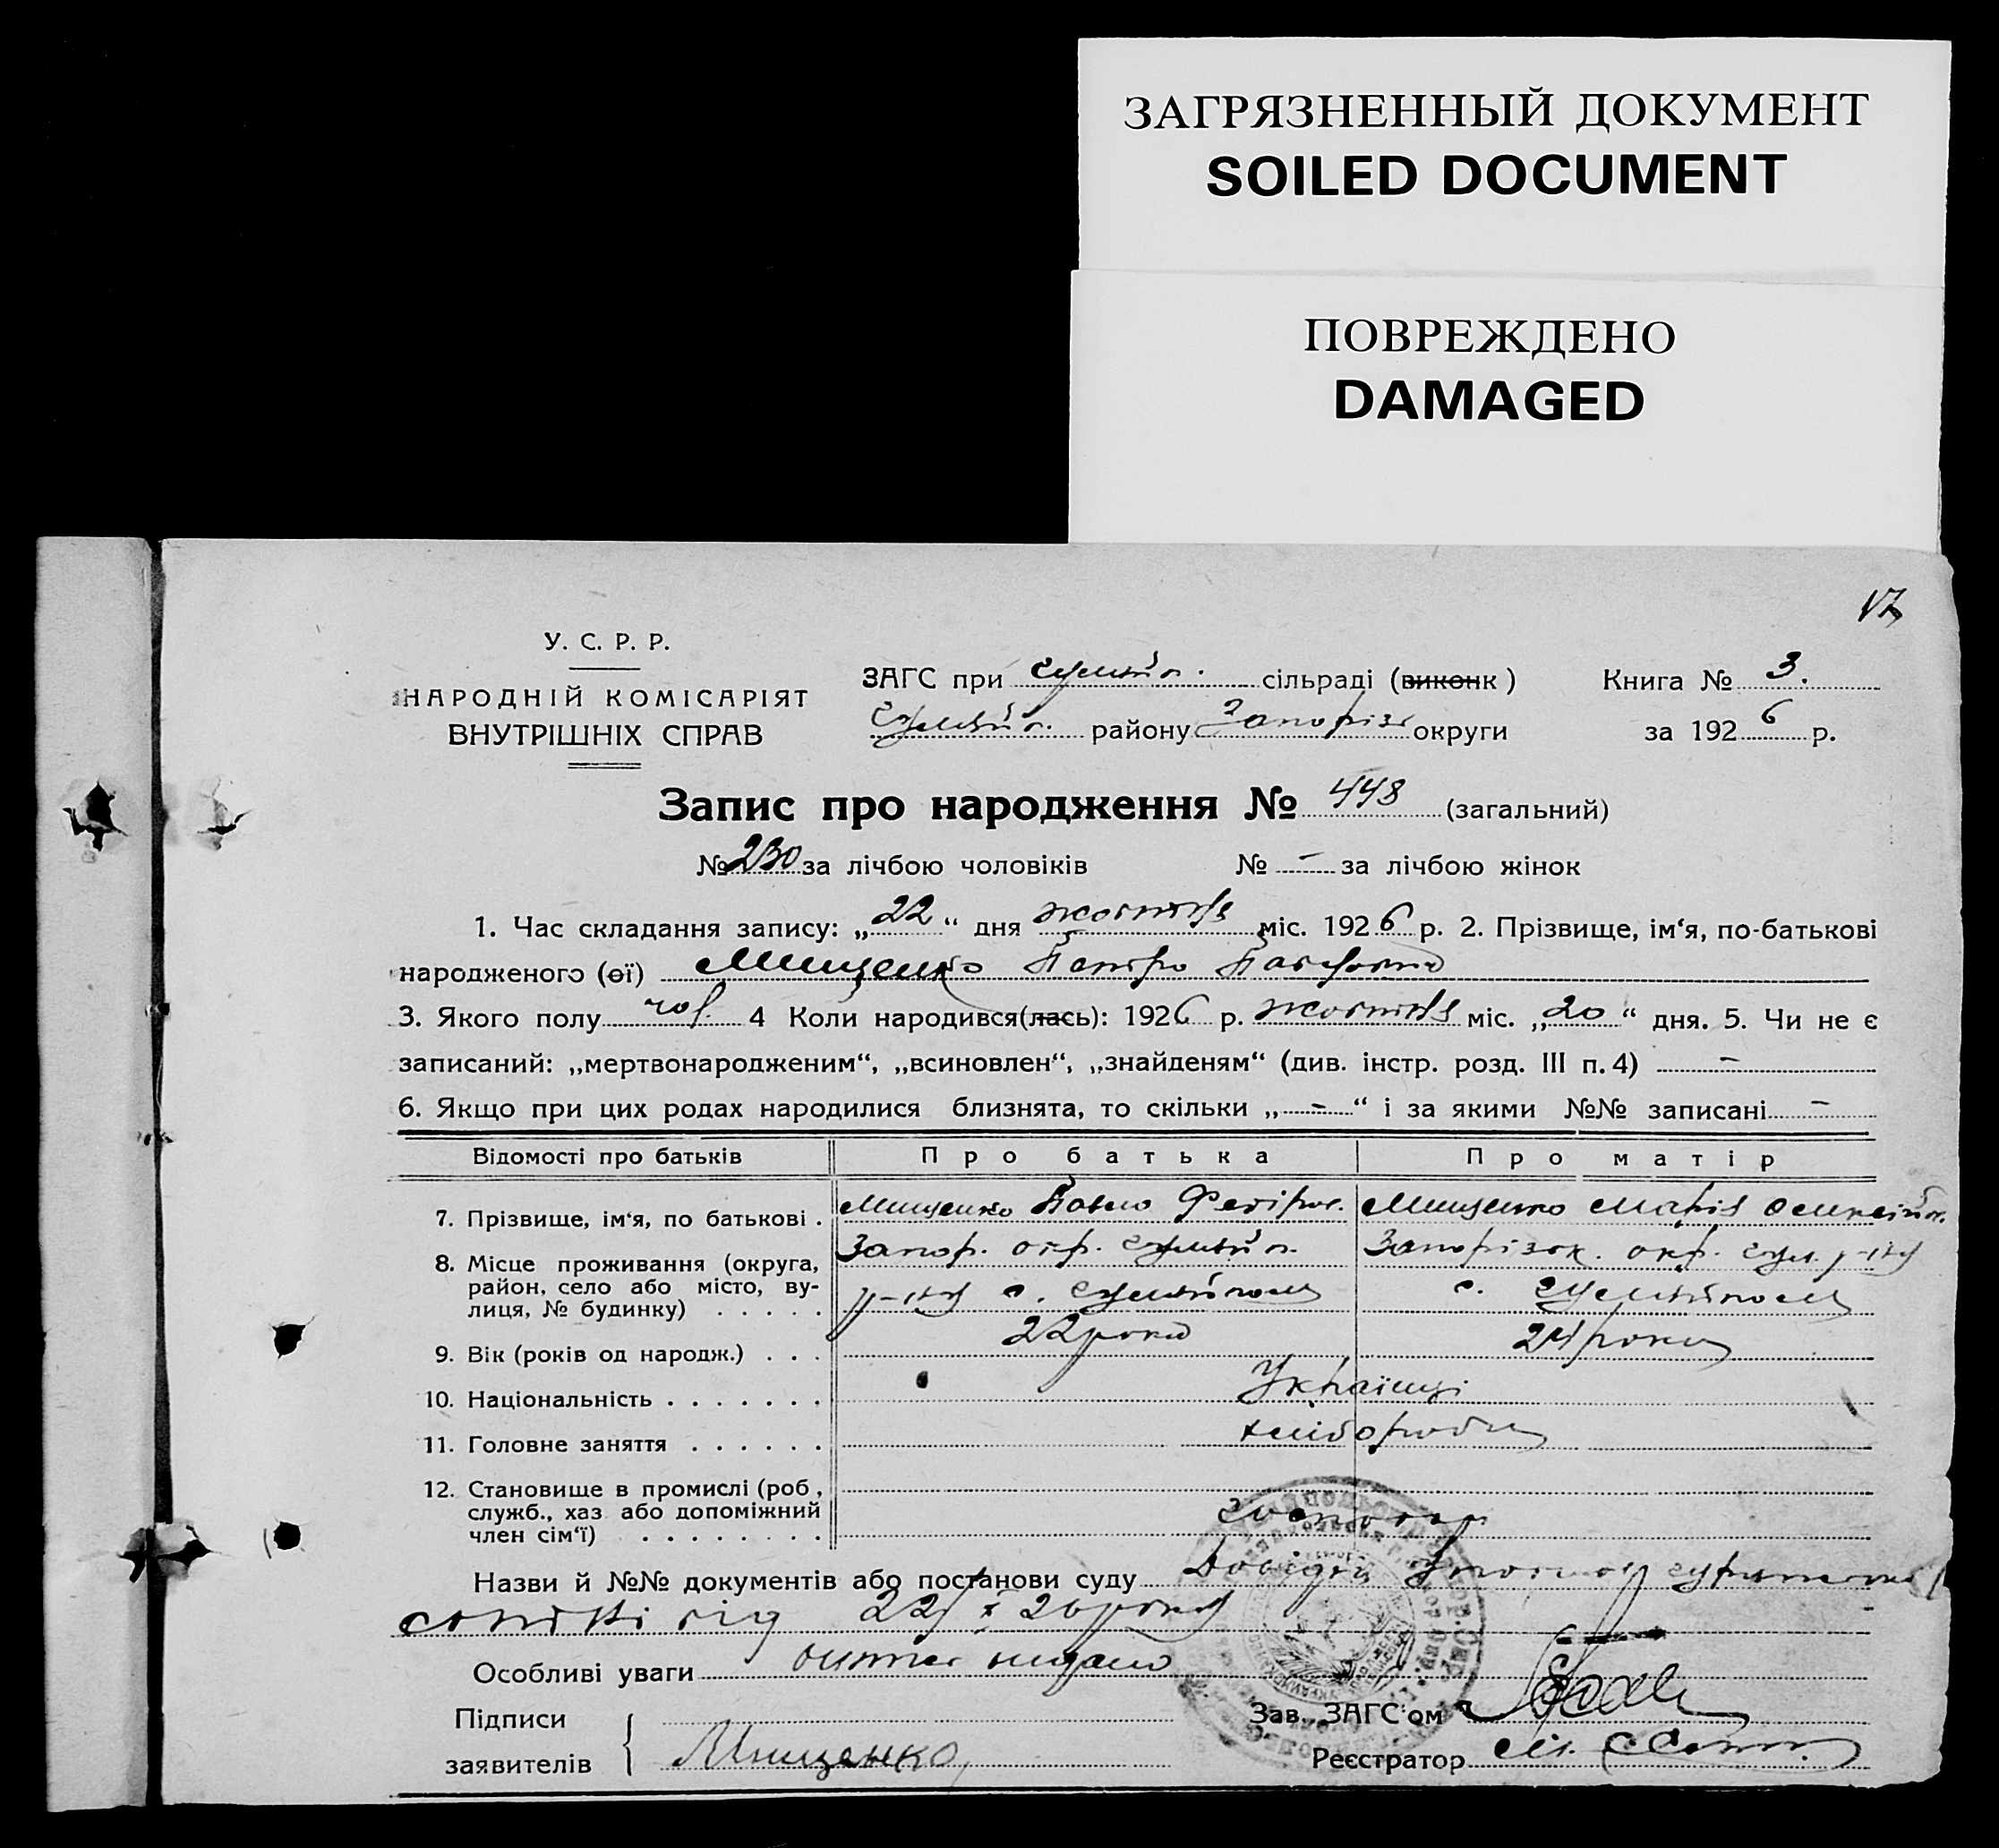 ЗАГРЯЗНЕННЫЙ ДОКУМЕНТ
SOILED DOCUMENT
ПОВРЕЖДЕНО
DAMAGED
17
У. С. Р. Р.
НАРОДНІЙ КОМІСАРІЯТ
ВНУТРІШНІХ СПРАВ
ЗАГС при Гуляйп. сільраді (виконк)
Гуляйп. району Запоріз округи
Книга № 3.
за 1926 р.
Запис про народження № 448 (загальний)
№ 230 за лічбою чоловіків № - за лічбою жінок
1. Час складання запису: „22“ дня жовтня міс. 1926 р. 2. Прізвище, ім‘я, по-батькові
народженого (ої) Мищенко Петро Павлович
3. Якого полу чол. 4 Коли народився(лась): 1926 р. жовтня міс. „20“ дня. 5. Чи не є
записаний: „мертвонародженим“, „всиновлен“, „знайденям“ (див. інстр. розд. III п. 4) -
6. Якщо при цих родах народилися близнята, то скільки „-“ і за якими №№ записані -
Відомості про батьків Про батька Про матір
7. Прізвище, ім‘я, по батькові . Мищенко Павло Мищенко Марія
8. Місце проживання (округа, район, село або місто, вулиця, № будинку) . . . . . Запор. окр. Гуляйп. р-ну с. Гуляйполе Запорізок. окр. Гул. р-ну с. Гуляйполе
9. Вік (років од народж.) . . . 22 роки 24 роки
10. Національність . . . . . . . Українці
11. Головне заняття . . . . . . хлібороби
12. Становище в промислі (роб, служб., хаз або допоміжний член сім‘ї) . . . . . . . .
Назви й №№ документів або постанови суду Довідка
від 22/X 26 року
Особливі уваги видано
Підписи
заявителів Мищенко
Зав. ЗАГС‘ом
Реєстратор